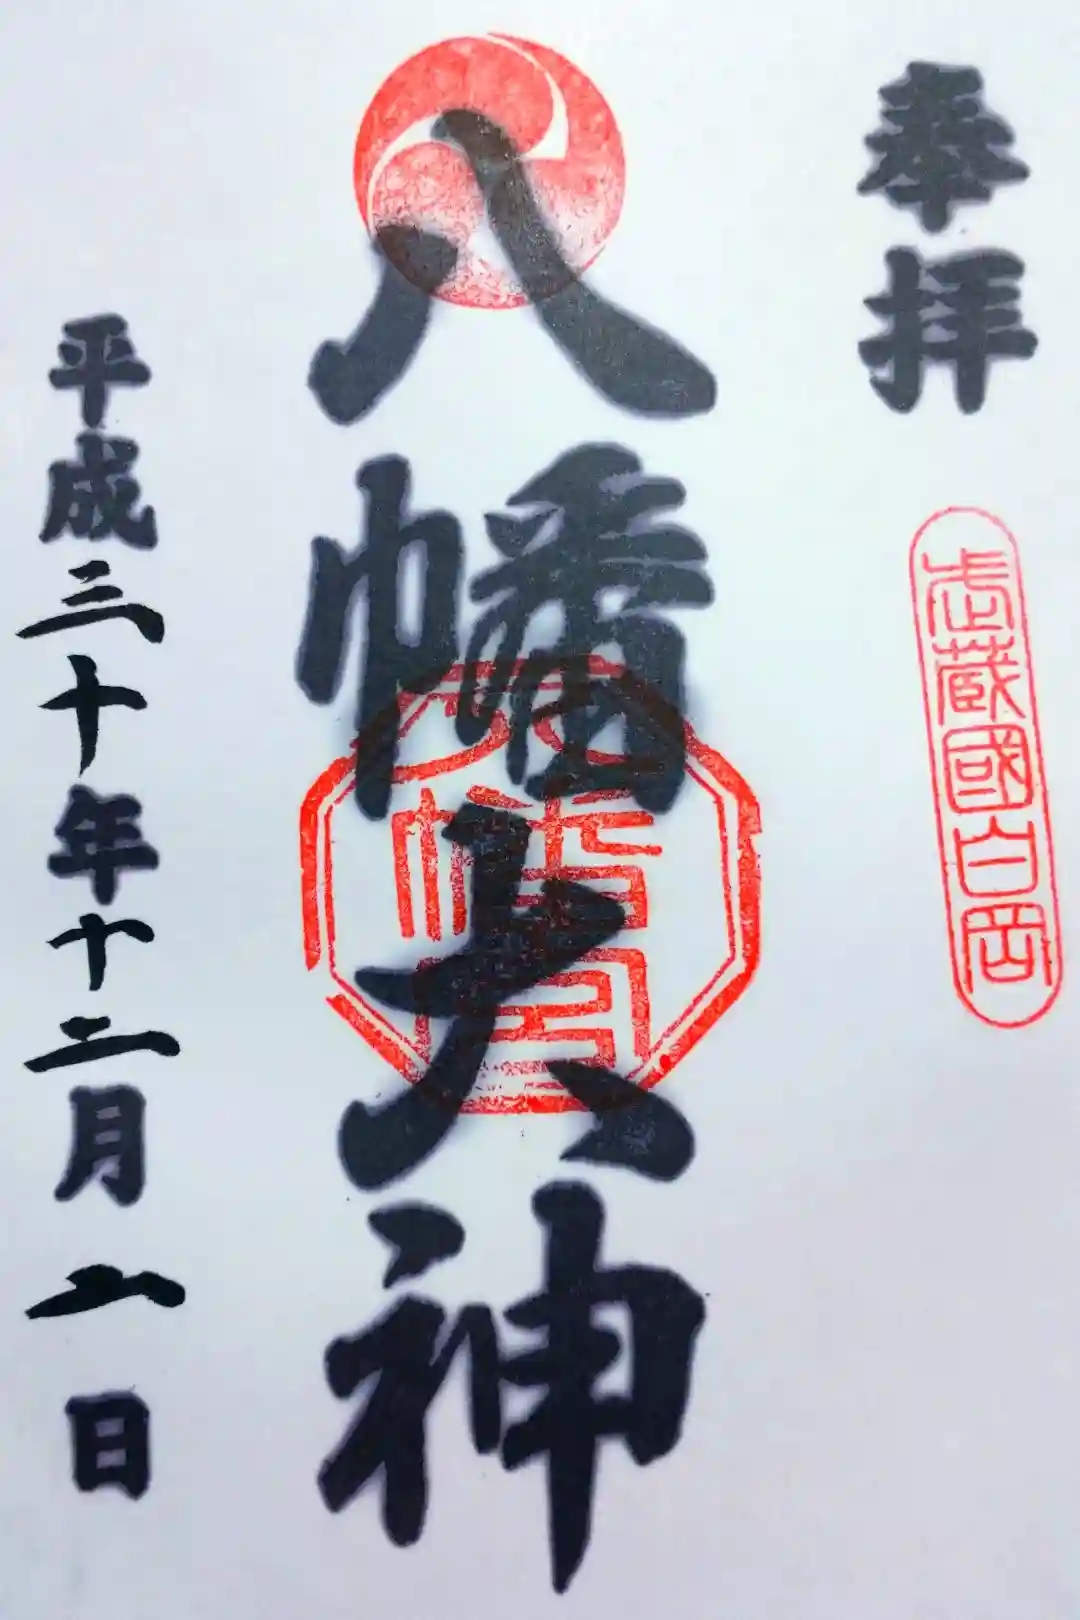 奉拝
武蔵國白岡
八幡大神
平成三十年十二月一日